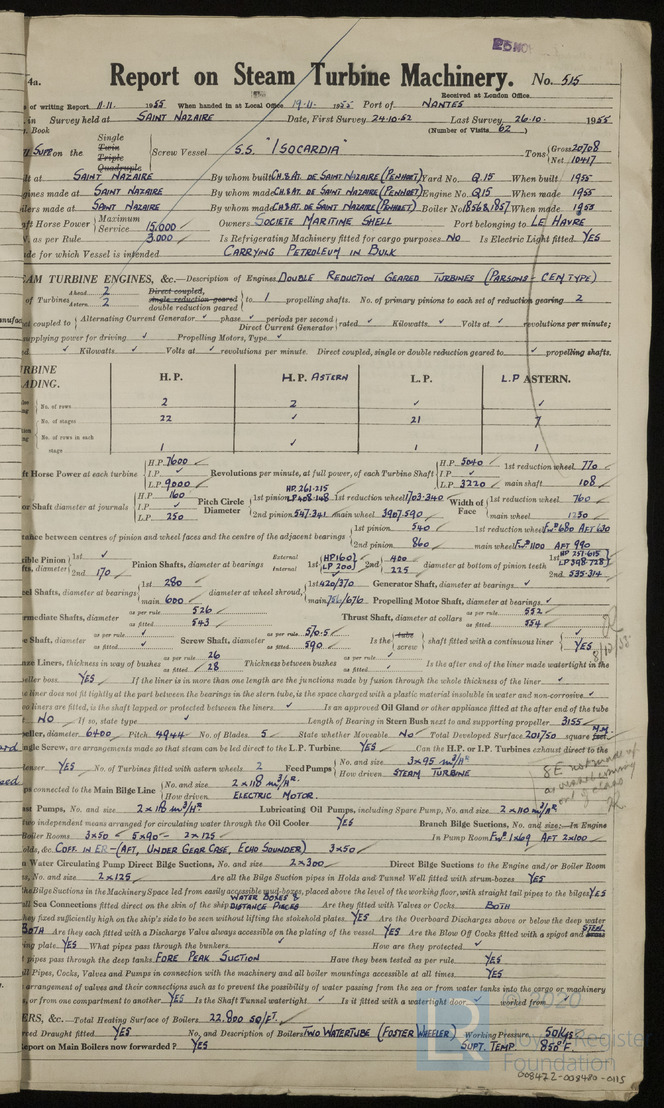 4a. Report on Steam Turbine Machinery. No. 515
Received at London Office
of writing Report 11.11. 1955 When handed in at Local Office 19.11. 1955 Port of NANTES
in Survey held at SAINT NAZAIRE Date, First Survey 24.10.52 Last Survey 26.10. 1955
Book (Number of Visits 62)
Single
Twin
Triple
Quadruple
on the Screw Vessel S.S. "ISOCARDIA" Tons Gross 20708
Net 10417
lt at SAINT NAZAIRE By whom built CH. & AT. DE SAINT NAZAIRE (PENHOET) Yard No. Q.15 When built 1955
gines made at SAINT NAZAIRE By whom made CH. & AT. DE SAINT NAZAIRE (PENHOET) Engine No. Q15 When made 1955
ilers made at SAINT NAZAIRE By whom made CH. & AT. DE SAINT NAZAIRE (PENHOET) Boiler No. 1856 & 1857 When made 1955
aft Horse Power Maximum
Service 15.000 Owners SOCIETE MARITIME SHELL Port belonging to LE HAVRE
as per Rule 3.000 Is Refrigerating Machinery fitted for cargo purposes NO Is Electric Light fitted YES
ade for which Vessel is intended CARRYING PETROLEUM IN BULK
EAM TURBINE ENGINES, &c.—Description of Engines DOUBLE REDUCTION GEARED TURBINES (PARSONS-CEM TYPE)
of Turbines Ahead 2 Astern 2 Direct coupled, single reduction geared double reduction geared to 1 propelling shafts. No. of primary pinions to each set of reduction gearing 2
ct coupled to Alternating Current Generator ✓ phase ✓ periods per second
Direct Current Generator rated ✓ Kilowatts ✓ Volts at ✓ revolutions per minute;
supplying power for driving ✓ Propelling Motors, Type ✓
ed ✓ Kilowatts ✓ Volts at ✓ revolutions per minute. Direct coupled, single or double reduction geared to ✓ propelling shafts.
RBINE
ADING. H.P. H.P. ASTERN L.P. L.P ASTERN.
No. of rows 2 2 ✓ ✓
No. of stages 22 ✓ 21 7
No. of rows in each stage 1 ✓ 1 1
ft Horse Power at each turbine H.P. 7600 I.P. ✓ L.P. 9000 Revolutions per minute, at full power, of each Turbine Shaft H.P. 5040 I.P. ✓ L.P. 3220 1st reduction wheel 770 main shaft 108
or Shaft diameter at journals H.P. 160 I.P. ✓ L.P. 250 Pitch Circle Diameter 1st pinion HP. 261.215 1st reduction wheel 1703.340 Width of Face 1st reduction wheel 760
2nd pinion 547.341 main wheel 3907.590 main wheel 1250
tance between centres of pinion and wheel faces and the centre of the adjacent bearings 1st pinion 540 1st reduction wheel Fwd 680 AFT 630
2nd pinion 860 main wheel Fwd 1100 AFT 990
xible Pinion 1st ✓ 2nd 170 Pinion Shafts, diameter at bearings External Internal 1st HP 160 LP 200 2nd 400 225 diameter at bottom of pinion teeth 1st HP 257.615 LP 398.728 2nd 535.314
eel Shafts, diameter at bearings 1st 280 main 600 diameter at wheel shroud, 1st 420/370 Generator Shaft, diameter at bearings ✓
main 756/676 Propelling Motor Shaft, diameter at bearings ✓
rmediate Shafts, diameter as per rule 526 as fitted 543 Thrust Shaft, diameter at collars as per rule 552 as fitted 554
e Shaft, diameter as per rule ✓ as fitted ✓ Screw Shaft, diameter as per rule 570.5 as fitted 590 Is the tube screw shaft fitted with a continuous liner ✓ YES
ze Liners, thickness in way of bushes as per rule 26 as fitted 28 Thickness between bushes as per rule ✓ as fitted ✓ Is the after end of the liner made watertight in the
eller boss YES If the liner is in more than one length are the junctions made by fusion through the whole thickness of the liner ✓
e liner does not fit tightly at the part between the bearings in the stern tube, is the space charged with a plastic material insoluble in water and non-corrosive ✓
vo liners are fitted, is the shaft lapped or protected between the liners ✓ Is an approved Oil Gland or other appliance fitted at the after end of the tube
NO If so, state type ✓ Length of Bearing in Stern Bush next to and supporting propeller 3155
eller, diameter 6400 Pitch 4944 No. of Blades 5 State whether Moveable NO Total Developed Surface 201750 square feet
ngle Screw, are arrangements made so that steam can be led direct to the L.P. Turbine YES Can the H.P. or I.P. Turbines exhaust direct to the
denser YES No. of Turbines fitted with astern wheels 2 Feed Pumps No. and size 3x95 m³/HR How driven STEAM TURBINE
ps connected to the Main Bilge Line No. and size 2 x 118 m³/HR. How driven ELECTRIC MOTOR.
ast Pumps, No. and size 2 x 118 m³/HR. Lubricating Oil Pumps, including Spare Pump, No. and size 2 x 110 m³/HR
two independent means arranged for circulating water through the Oil Cooler YES Branch Bilge Suctions, No. and size:—In Engine
Boiler Rooms 3x50 5x90 2x125 In Pump Room Fwd 1x69 AFT 2x100
olds, &c. COFF. IN ER-(AFT, UNDER GEAR CASE, ECHO SOUNDER) 3x50
n Water Circulating Pump Direct Bilge Suctions, No. and size 2x300 Direct Bilge Suctions to the Engine and/or Boiler Room
s, No. and size 2x125 Are all the Bilge Suction pipes in Holds and Tunnel Well fitted with strum-boxes YES
the Bilge Suctions in the Machinery Space led from easily accessible mud-boxes, placed above the level of the working floor, with straight tail pipes to the bilges YES
all Sea Connections fitted direct on the skin of the ship WATER BOXES & DISTANCE PIECES Are they fitted with Valves or Cocks BOTH
hey fixed sufficiently high on the ship's side to be seen without lifting the stokehold plates YES Are the Overboard Discharges above or below the deep water
BOTH Are they each fitted with a Discharge Valve always accessible on the plating of the vessel YES Are the Blow Off Cocks fitted with a spigot and STEEL brass
ing plate YES What pipes pass through the bunkers ✓ How are they protected ✓
t pipes pass through the deep tanks FORE PEAK SUCTION Have they been tested as per rule YES
ll Pipes, Cocks, Valves and Pumps in connection with the machinery and all boiler mountings accessible at all times YES
arrangement of valves and their connections such as to prevent the possibility of water passing from the sea or from water tanks into the cargo or machinery
s, or from one compartment to another YES Is the Shaft Tunnel watertight ✓ Is it fitted with a watertight door ✓ worked from ✓
ERS, &c.—Total Heating Surface of Boilers 22.800 SQ/FT.
ced Draught fitted YES No. and Description of Boilers TWO WATERTUBE (FOSTER WHEELER) Working Pressure 50 Kgs
eport on Main Boilers now forwarded? YES SUPT. TEMP 850°F.
© 2020
Lloyd's Register
Foundation
008472-008480-0115